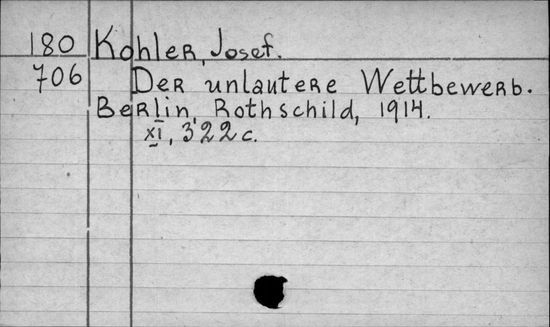 180 Kohler, Josef.
706 Der unlautere Wettbewerb.
Berlin, Rothschild, 1914.
XI, 322 c.